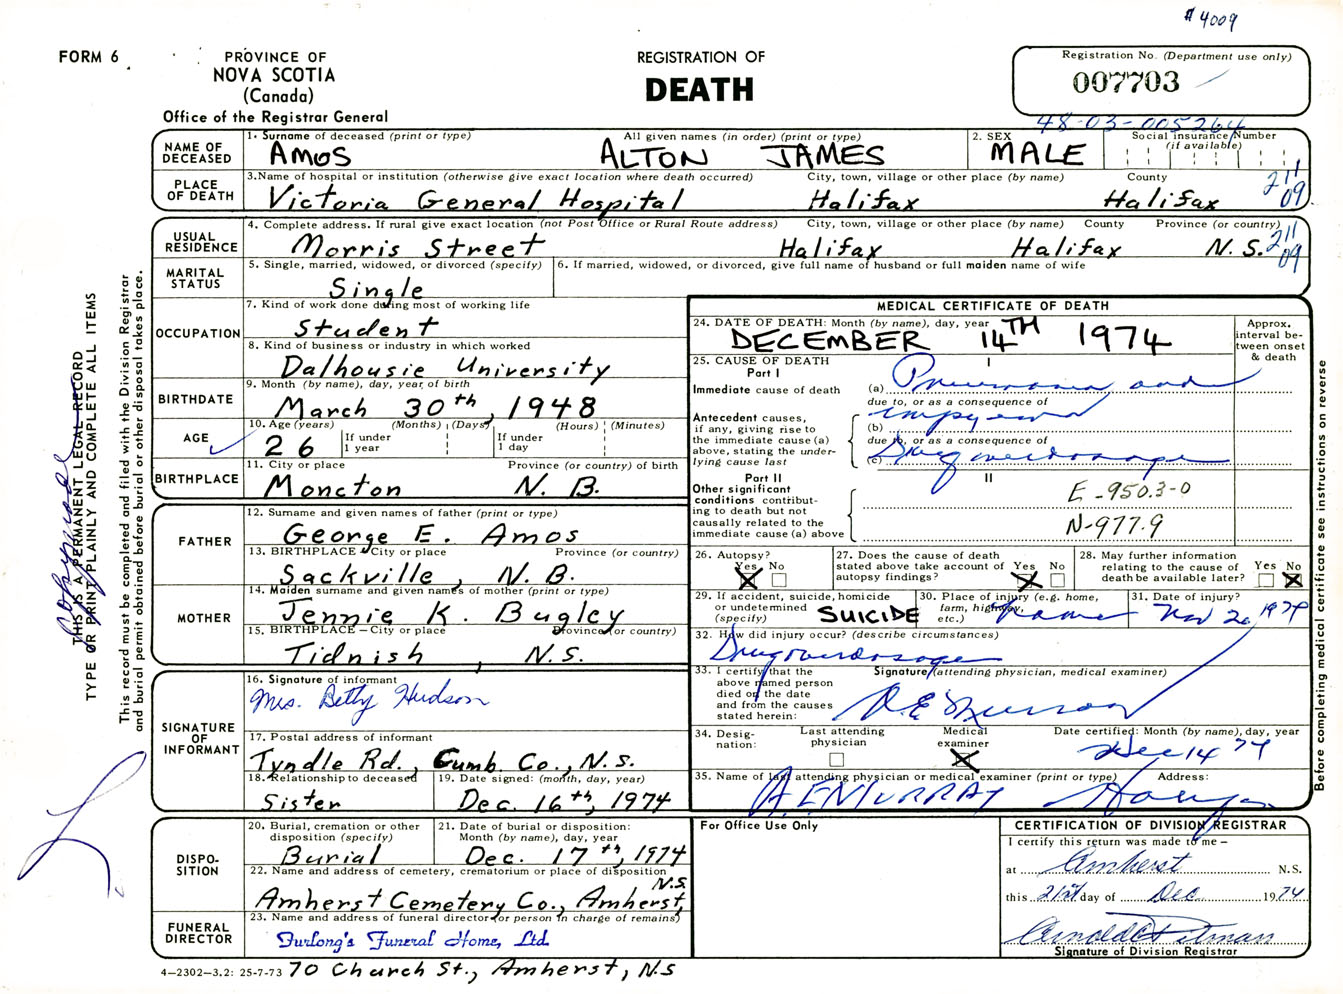 # 4009
FORM 6
PROVINCE OF
NOVA SCOTIA
(Canada)
Office of the Registrar General
REGISTRATION OF
DEATH
Registration No. (Department use only)
007703
48-03-005264
NAME OF DECEASED
1. Surname of deceased (print or type) All given names (in order) (print or type) 2. SEX Social insurance Number (if available)
AMOS ALTON JAMES MALE
PLACE OF DEATH
3.Name of hospital or institution (otherwise give exact location where death occurred) City, town, village or other place (by name) County
Victoria General Hospital Halifax Halifax 211 09
USUAL RESIDENCE
4. Complete address. If rural give exact location (not Post Office or Rural Route address) City, town, village or other place (by name) County Province (or country)
Morris Street Halifax Halifax N.S. 211 09
MARITAL STATUS
5. Single, married, widowed, or divorced (specify) 6. If married, widowed, or divorced, give full name of husband or full maiden name of wife
Single
OCCUPATION
7. Kind of work done during most of working life
Student
8. Kind of business or industry in which worked
Dalhousie University
BIRTHDATE
9. Month (by name), day, year of birth
March 30th, 1948
AGE
10. Age (years) (Months) (Days) (Hours) (Minutes)
26 If under 1 year If under 1 day
BIRTHPLACE
11. City or place Province (or country) of birth
Moncton N. B.
FATHER
12. Surname and given names of father (print or type)
George E. Amos
13. BIRTHPLACE - City or place Province (or country)
Sackville, N. B.
MOTHER
14. Maiden surname and given names of mother (print or type)
Jennie K. Bugley
15. BIRTHPLACE - City or place Province (or country)
Tidnish, N.S.
SIGNATURE OF INFORMANT
16. Signature of informant
Mrs. Betty Hudson
17. Postal address of informant
Tyndle Rd., Cumb. Co., N.S.
18. Relationship to deceased 19. Date signed: (month, day, year)
Sister Dec. 16th, 1974
DISPO-SITION
20. Burial, cremation or other disposition (specify) 21. Date of burial or disposition: Month (by name), day, year
Burial Dec. 17th, 1974
22. Name and address of cemetery, crematorium or place of disposition
Amherst Cemetery Co., Amherst, N.S.
FUNERAL DIRECTOR
23. Name and address of funeral director (or person in charge of remains)
Furlong's Funeral Home, Ltd.
4-2302-3.2: 25-7-73 70 Church St., Amherst, N.S
MEDICAL CERTIFICATE OF DEATH
24. DATE OF DEATH: Month (by name), day, year
DECEMBER 14TH 1974
Approx. interval between onset & death
25. CAUSE OF DEATH
Part I
I
Immediate cause of death
(a) Pneumonia and
due to, or as a consequence of
Antecedent causes, if any, giving rise to the immediate cause (a) above, stating the underlying cause last
(b) empyema
due to, or as a consequence of
(c) Drug overdosage
Part II
II
Other significant conditions contributing to death but not causally related to the immediate cause (a) above
E-950.3-0
N-977.9
26. Autopsy? Yes No
27. Does the cause of death stated above take account of autopsy findings? Yes No
28. May further information relating to the cause of death be available later? Yes No
29. If accident, suicide, homicide or undetermined (specify) SUICIDE
30. Place of injury (e.g. home, farm, highway, etc.) home
31. Date of injury? Nov 2 1974
32. How did injury occur? (describe circumstances)
Drug overdosage
33. I certify that the above named person died on the date and from the causes stated herein:
Signature (attending physician, medical examiner)
34. Designation: Last attending physician Medical examiner Date certified: Month (by name), day, year
Dec 14 74
35. Name of last attending physician or medical examiner (print or type) Address:
A.E. MURRAY
For Office Use Only
CERTIFICATION OF DIVISION REGISTRAR
I certify this return was made to me –
at Amherst N.S.
this 21st day of Dec 1974
Arnold Pitman
Signature of Division Registrar
THIS IS A PERMANENT LEGAL RECORD
TYPE OR PRINT PLAINLY AND COMPLETE ALL ITEMS
This record must be completed and filed with the Division Registrar
and burial permit obtained before burial or other disposal takes place.
Before completing medical certificate see instructions on reverse